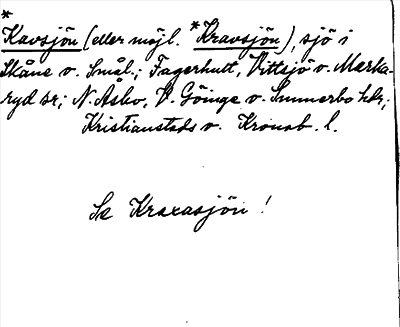 *Kavsjön (eller möjl. *Kravsjön), sjö i
Skåne o. Smål.; Fagerhult, Vittsjö o. Marka-
ryd sr; N. Åsbo, V. Göinge o. Sunnerbo hdr;
Kristianstads o. Kronob. l.
Se Kraxasjön!